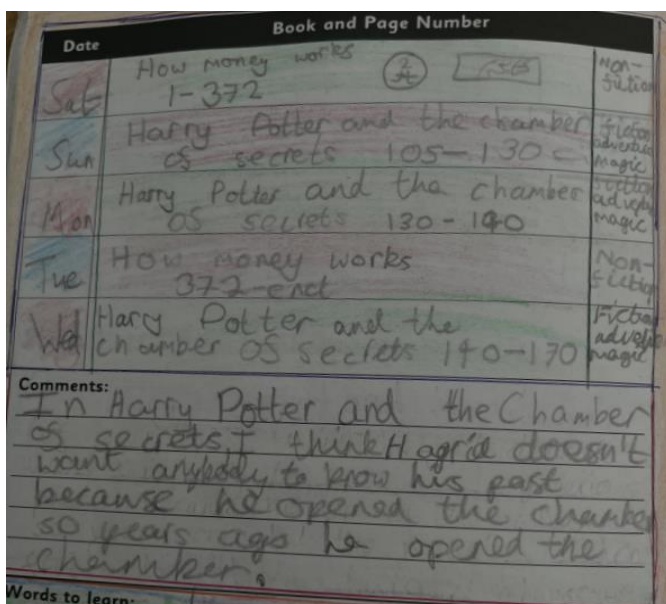 Date
Book and Page Number
Sat
How money works
1-372
Non-
fiction
Sun
Harry Potter and the chamber
of secrets 105-130
fiction
adventure
magic
Mon
Harry Potter and the chamber
of secrets 130-140
fiction
magic
Tue
How money works
372-end
Non-
fiction
Wed
Harry Potter and the
chamber of secrets 140-170
Fiction
magic
Comments:
In Harry Potter and the Chamber
of secrets, I think Hagrid doesn't
want anybody to know his past
because he opened the chamber
50 years ago he opened the
chamber.
Words to learn: